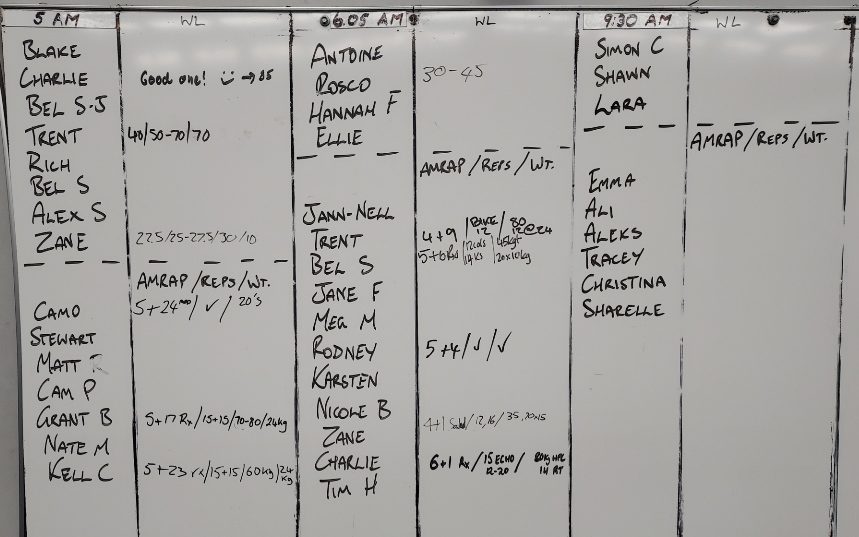 5 AM WL
BLAKE
CHARLIE Good one! → 35
BEL S-J
TRENT 40/50-70/70
RICH
BEL S
ALEX S
ZANE 22.5/25-27.5/30/10
AMRAP/REPS/WT.
CAMO 5+24 /✓/ 20's
STEWART
MATT
CAM P
GRANT B 5+17 Rx/15+15/70-80/24kg
NATE M
KELL C 5+23 rx/15+15/60kg/24kg
6.05 AM WL
ANTOINE
ROSCO 30-45
HANNAH F
ELLIE
AMRAP/REPS/WT.
JANN-NELL
TRENT 4+9 /BIKE 12/ 80 12@24
BEL S 5+6
JANE F
MEG M
RODNEY 5+4/✓/✓
KARSTEN
NICOLE B 4+1
ZANE
CHARLIE 6+1 Rx/15 ECHO 12-20/
TIM H
9:30 AM WL
SIMON C
SHAWN
LARA
AMRAP/REPS/WT.
EMMA
ALI
ALEKS
TRACEY
CHRISTINA
SHARELLE